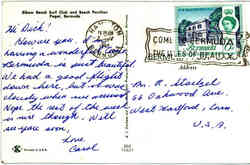 Elbow Beach Surf Club and Beach Pavilion
Paget, Bermuda
Hi Dick!
How are you. I'm
having a wonderful time.
Bermuda is just beautiful.
We had a good flight
down here, but it was
cloudy when we arrived
The rest of the week
is nice though. Will
see you soon,
Love,
Carol
HAMILTON
BERMUDA
COME TO BERMUDA
Bermuda
Address
Mr. R. Stachel
Oakwood Ave.
West Hartford, Conn.
U.S.A.